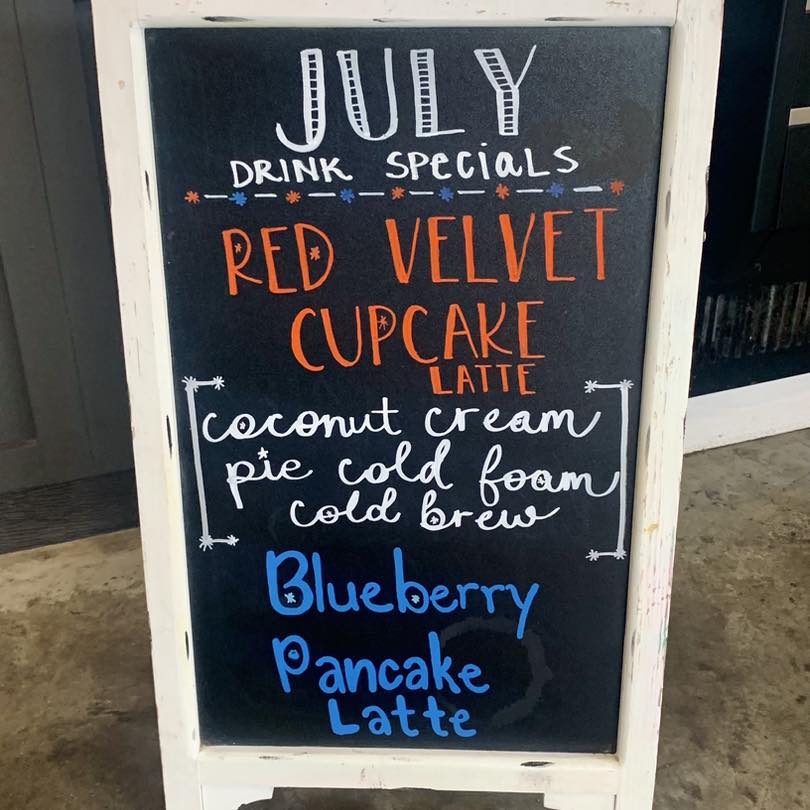 JULY
DRINK SPecIALS
RED VELVET
CUPCAKE
LATTE
coconut cream
pie cold foam
cold brew
Blueberry
Pancake
Latte